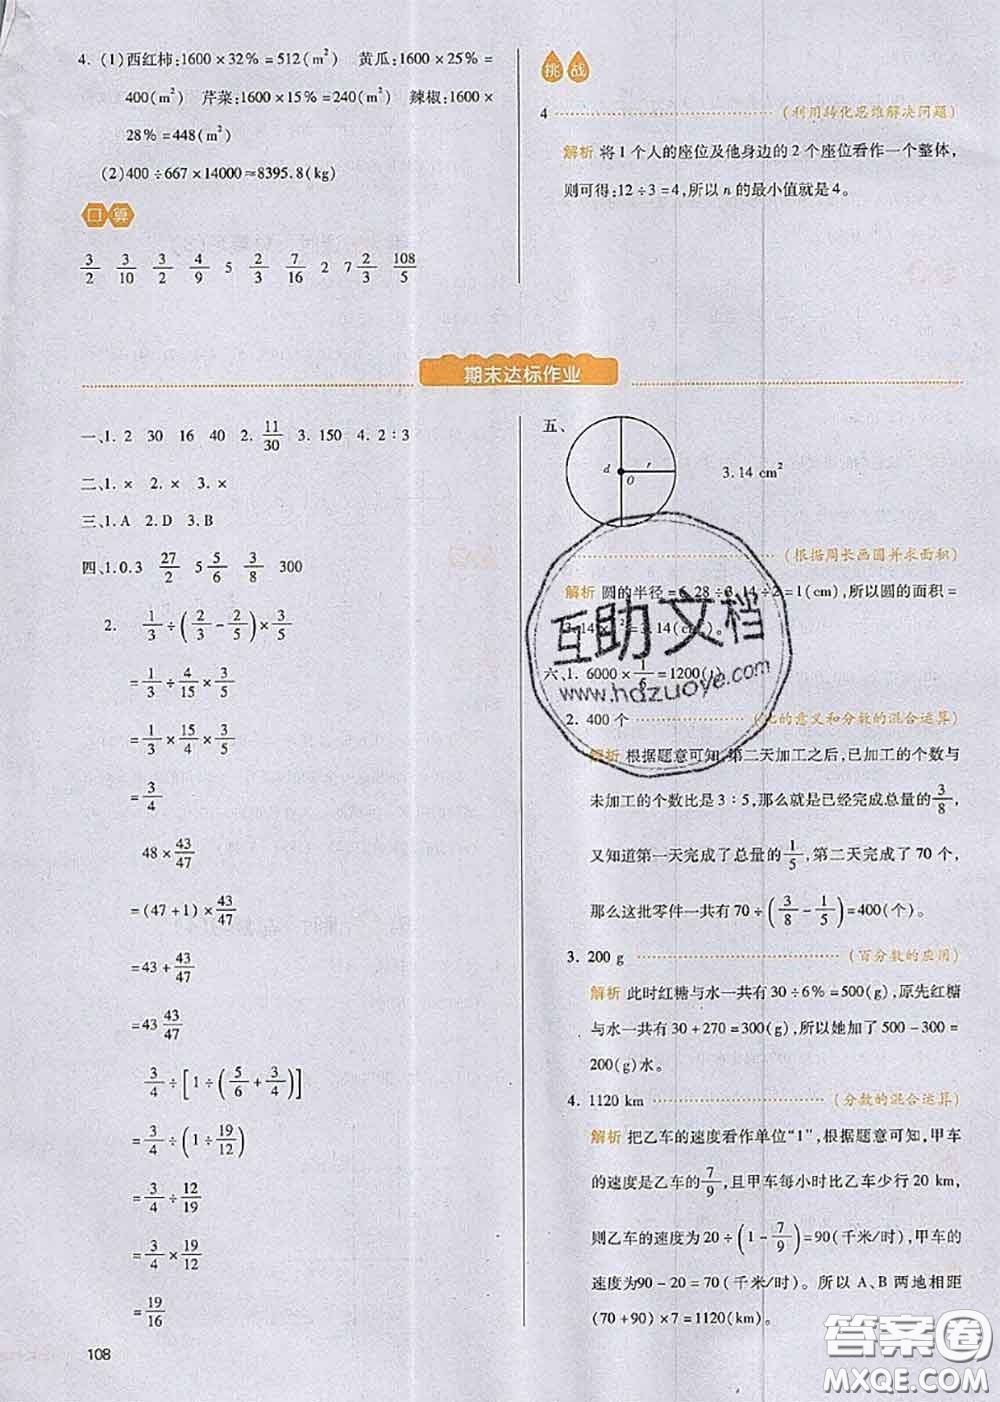 4. (1)西红柿:1600×32%=512(m²) 黄瓜:1600×25%=
400(m²) 芹菜:1600×15%=240(m²) 辣椒:1600×
28%=448(m²)
(2)400÷667×14000≈8395.8(kg)
口算
3/2 3/10 3/2 4/9 5 2/3 7/16 2 7 2/3 108/5
挑战
4 (利用转化思维解决问题)
解析 将1个人的座位及他身边的2个座位看作一个整体,
则可得:12÷3=4,所以n的最小值就是4。
期末达标作业
一、1. 2 30 16 40 2. 11/30 3. 150 4. 2:3
二、1. × 2. × 3. ×
三、1. A 2. D 3. B
四、1. 0.3 27/2 5 5/6 3/8 300
2. 1/3÷(2/3-2/5)×3/5
=1/3÷4/15×3/5
=1/3×15/4×3/5
=3/4
48×43/47
=(47+1)×43/47
=43+43/47
=43 43/47
3/4÷[1÷(5/6+3/4)]
=3/4÷(1÷19/12)
=3/4÷12/19
=3/4×19/12
=19/16
108
五、
d r O 3.14 cm²
(根据周长画圆并求面积)
解析 圆的半径=6.28÷3.14÷2=1(cm),所以圆的面积=
3.14×1²=3.14(cm²)。
六、1. 6000×1/6=1200(
2. 400个 (比的意义和分数的混合运算)
解析 根据题意可知,第二天加工之后,已加工的个数与
未加工的个数比是3:5,那么就是已经完成总量的3/8,
又知道第一天完成了总量的1/5,第二天完成了70个,
那么这批零件一共有70÷(3/8-1/5)=400(个)。
3. 200 g (百分数的应用)
解析 此时红糖与水一共有30÷6%=500(g),原先红糖
与水一共有30+270=300(g),所以她加了500-300=
200(g)水。
4. 1120 km (分数的混合运算)
解析 把乙车的速度看作单位“1”,根据题意可知,甲车
的速度是乙车的7/9,且甲车每小时比乙车少行20 km,
则乙车的速度为20÷(1-7/9)=90(千米/时),甲车的
速度为90-20=70(千米/时)。所以A、B两地相距
(70+90)×7=1120(km)。
互助文档
www.hdzuoye.com
答案圈
MXQE.COM